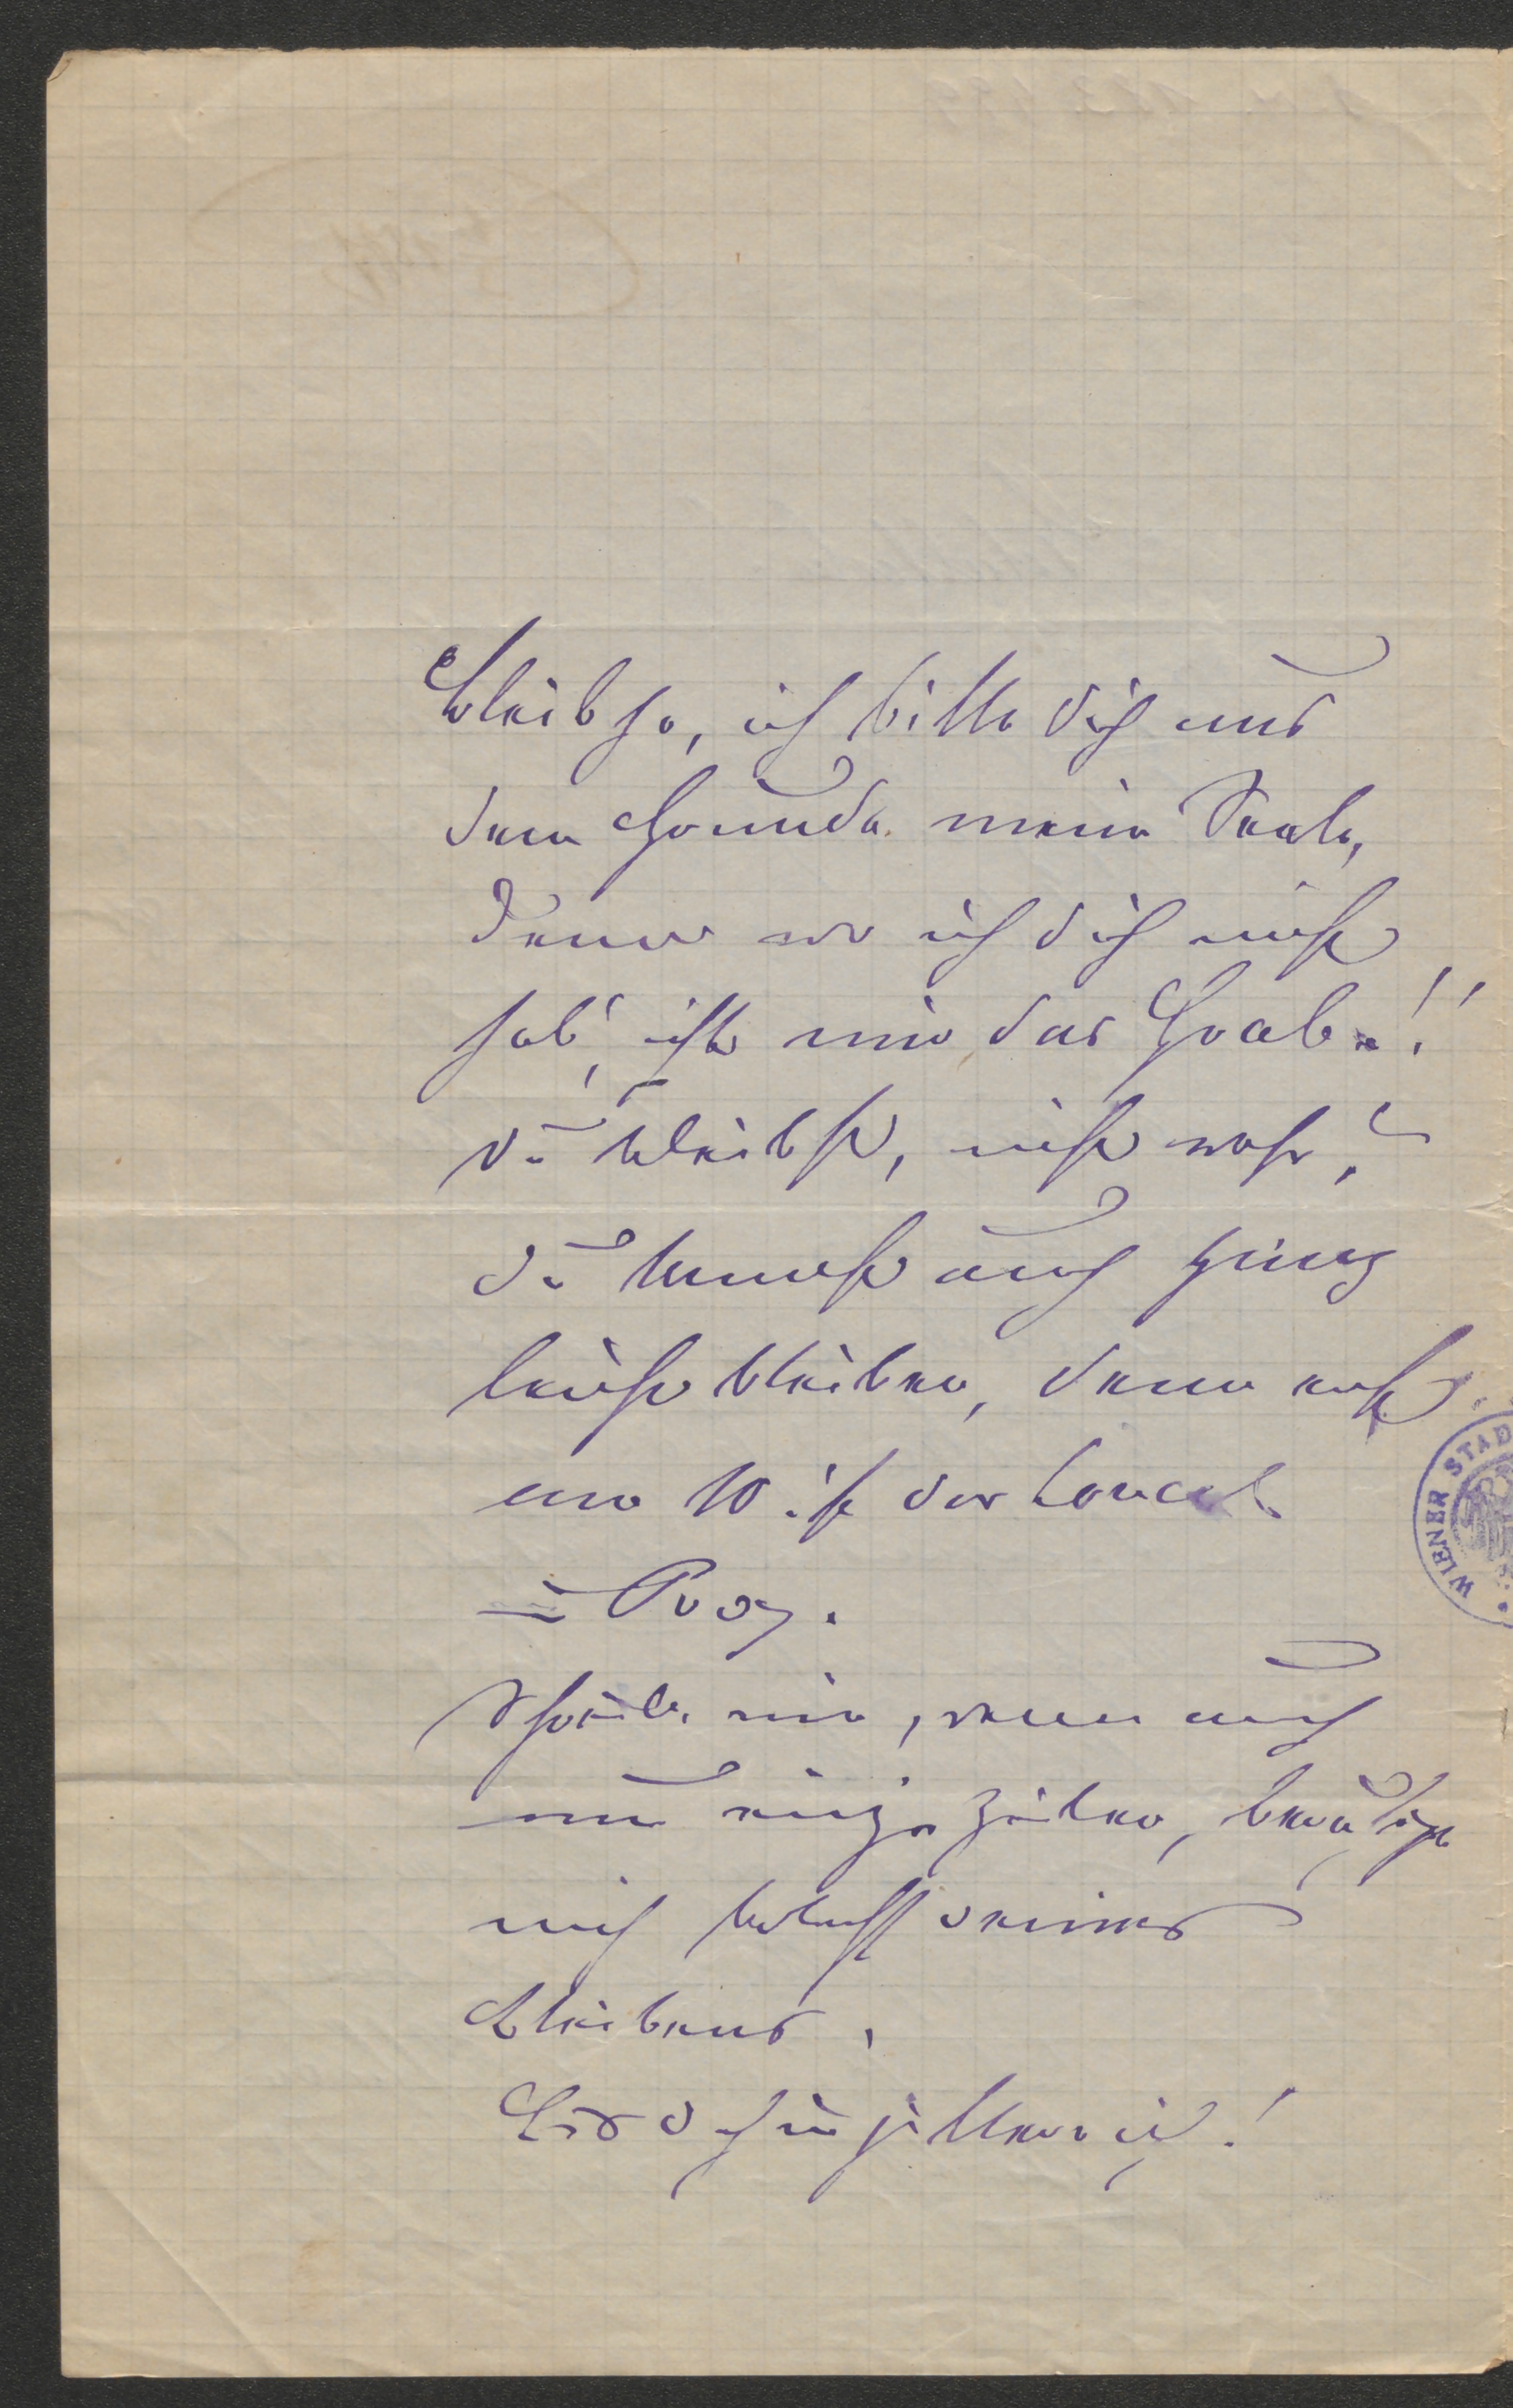 bleib ja, ich bitte dich aus
dem Grunde meiner Seele,
denn wo ich dich nicht
hab, ist mir das Grab.!!
Du bleibst, nicht wahr?
du kannst auch ganz
leicht bleiben, denn erst
am 10. ist der
in Prag.
Schreibe mir, wenn auch
nur einige Zeilen, beruhige
mich deines
Bleibens.
WIENER STAD